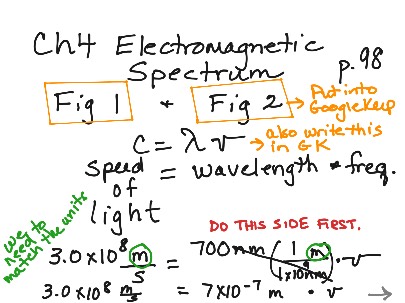 Ch4 Electromagnetic
Spectrum
p.98
Fig 1 + Fig 2 → Put into
GoogleKeep
c = λ v → also write this
in GK
speed of light = wavelength * freq.
we need to match the units
DO THIS SIDE FIRST.
3.0 x 10⁸ m/s = 700 nm (1 m / 1x10⁹ nm) · v
3.0 x 10⁸ m/s = 7x10⁻⁷ m · v →